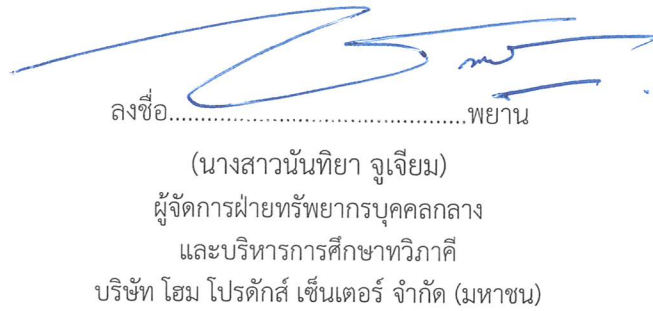 ลงชื่อ............................................พยาน
(นางสาวนันทิยา จูเจียม)
ผู้จัดการฝ่ายทรัพยากรบุคคลกลาง
และบริหารการศึกษาทวิภาคี
บริษัท โฮม โปรดักส์ เซ็นเตอร์ จำกัด (มหาชน)